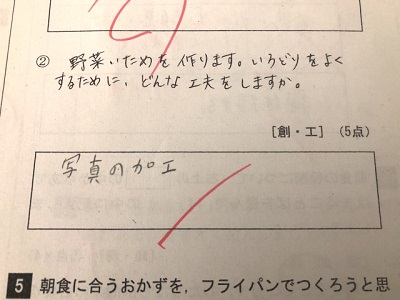 ② 野菜いためを作ります。いろどりをよく
するために、どんな工夫をしますか。
[創・工] (5点)
写真の加工
5 朝食に合うおかずを，フライパンでつくろうと思